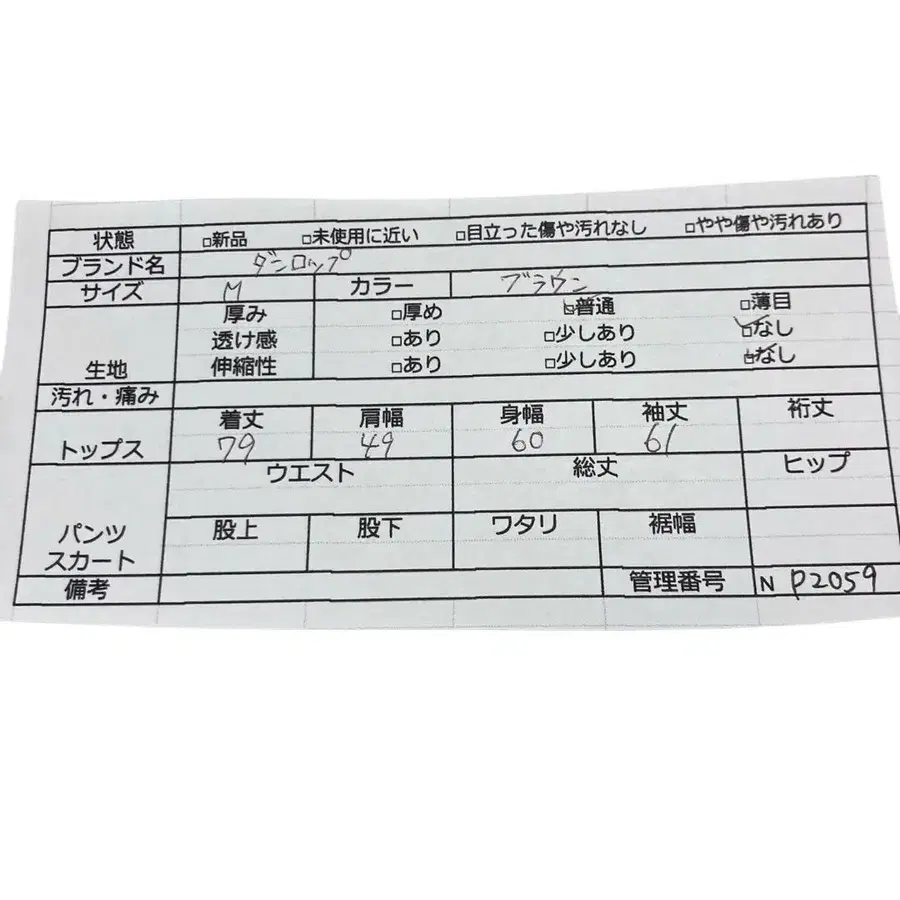 状態 □新品 □未使用に近い □目立った傷や汚れなし □やや傷や汚れあり
ブランド名 ダンロップ
サイズ M カラー ブラウン
厚み □厚め ☑普通 □薄目
透け感 □あり □少しあり ☑なし
生地 伸縮性 □あり □少しあり ☑なし
汚れ・痛み
着丈 肩幅 身幅 袖丈 裄丈
トップス 79 49 60 61
ウエスト 総丈 ヒップ
股上 股下 ワタリ 裾幅
パンツ
スカート
備考 管理番号 N P2059